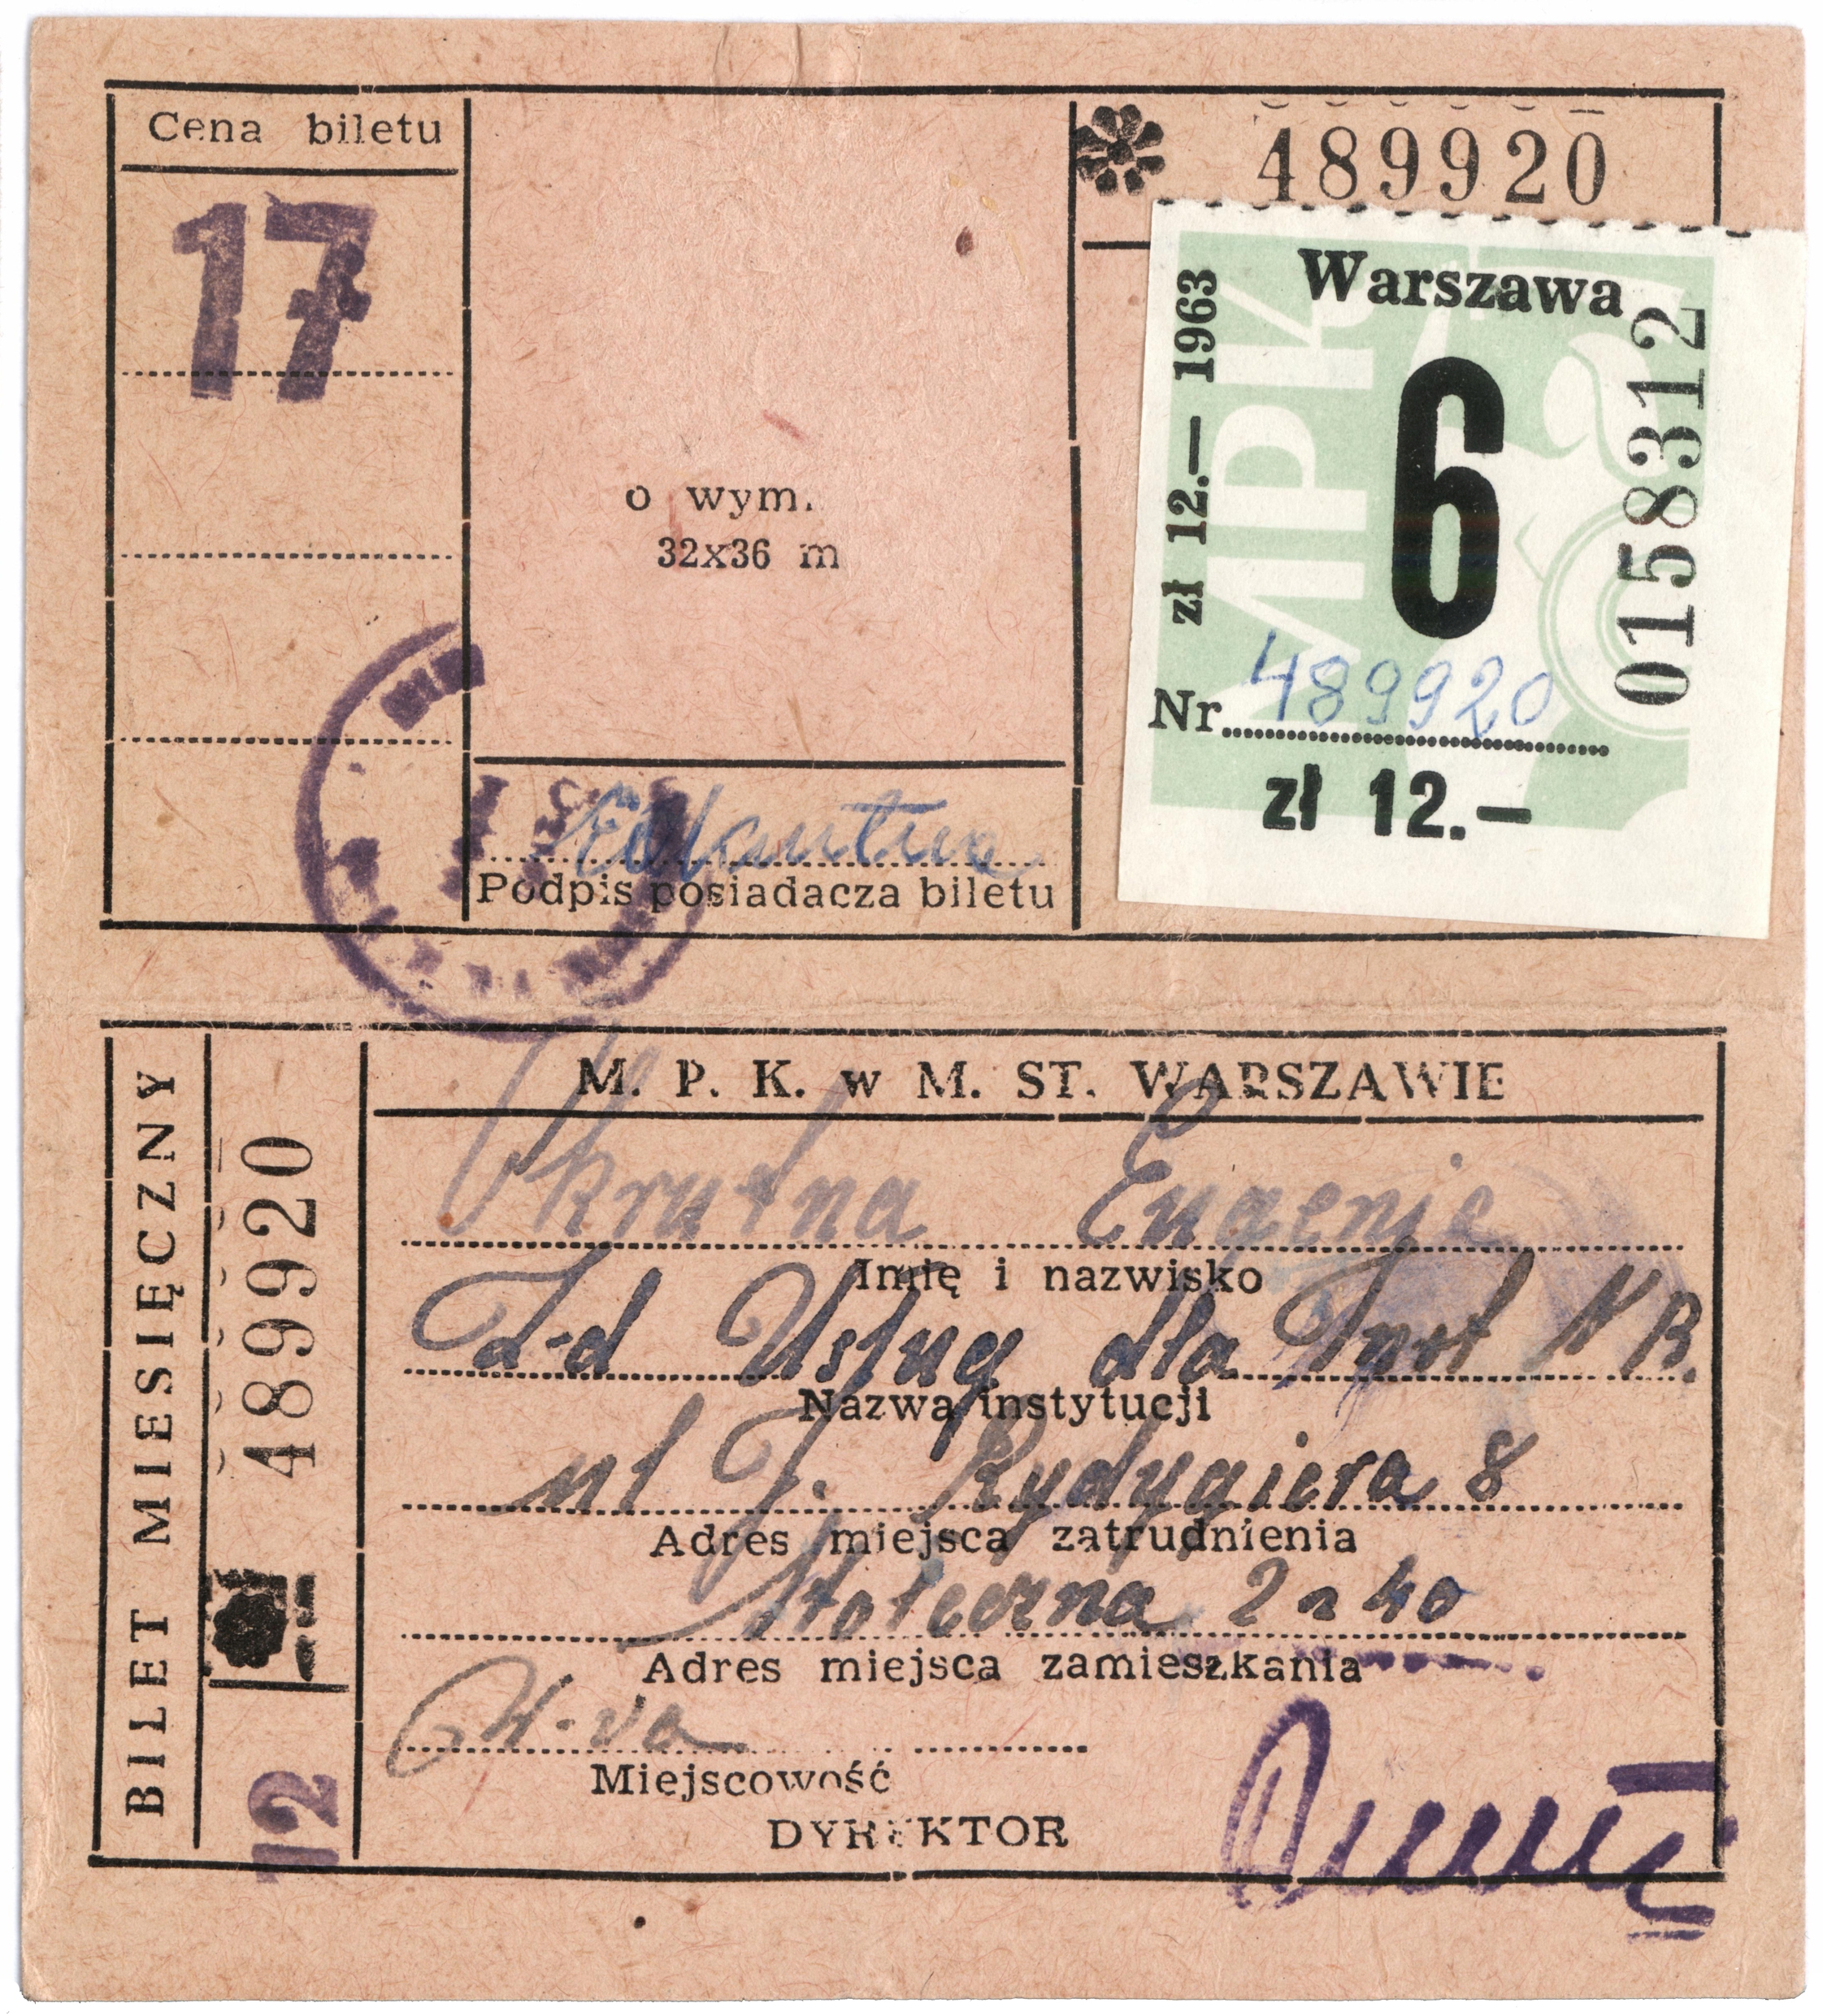 Cena biletu
17
o wym.
32x36 m
Podpis posiadacza biletu
489920
Warszawa
zł 12.— 1963
6
0158312
Nr 489920
zł 12.—
BILET MIESIĘCZNY
489920
12
M. P. K. w M. ST. WARSZAWIE
Eugenie
Imię i nazwisko
Z-d Usług dla
Nazwa instytucji
ul J. Rydygiera 8
Adres miejsca zatrudnienia
Stołeczna 2 40
Adres miejsca zamieszkania
W-wa
Miejscowość
DYREKTOR